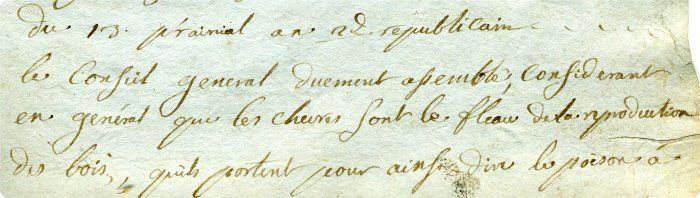 du 13. prairial an 2d. republicain
le Conseil general duement assemblé, Considerant
en général que les chevres sont le fleau de la reproduction
des bois, quils portent pour ainsi dire le poison à